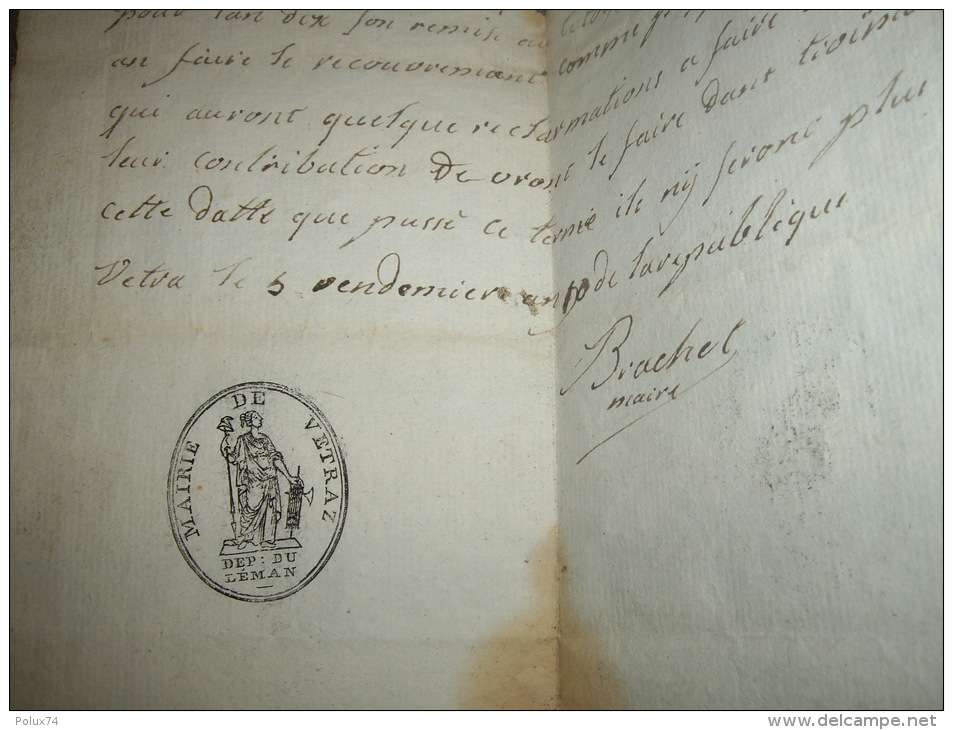 pour lan dix son remise au
an faire le recouvremant comme
qui auront quelque reclarmations a faire
leur contribution devront le faire dant
cette datte que passè ce terme ils nij serons plus
Vetra le 5 vendemiere an 10 de la republique
Brachet
maire
MAIRIE DE VETRAZ
DEP: DU
LÉMAN
Polux74
www.delcampe.net